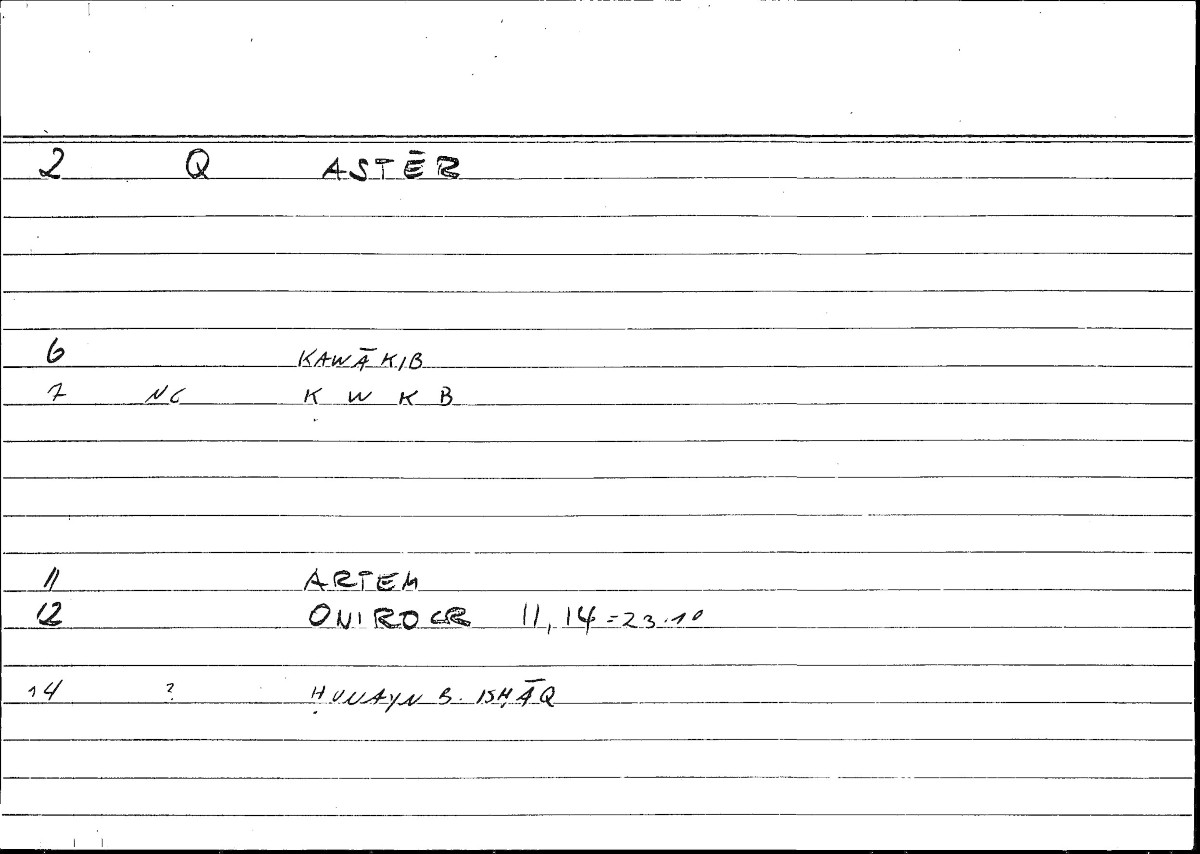 2 Q ASTĒR
6 KAWĀKIB
7 NG K W K B
11 ARTEM
12 ONIROCR 11, 14 = 23.10
14 ? ḤUNAYN B. ISḤĀQ